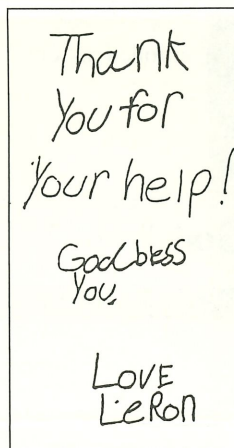 Thank
You for
Your help!
God bless
You.
LOVE
LeRon